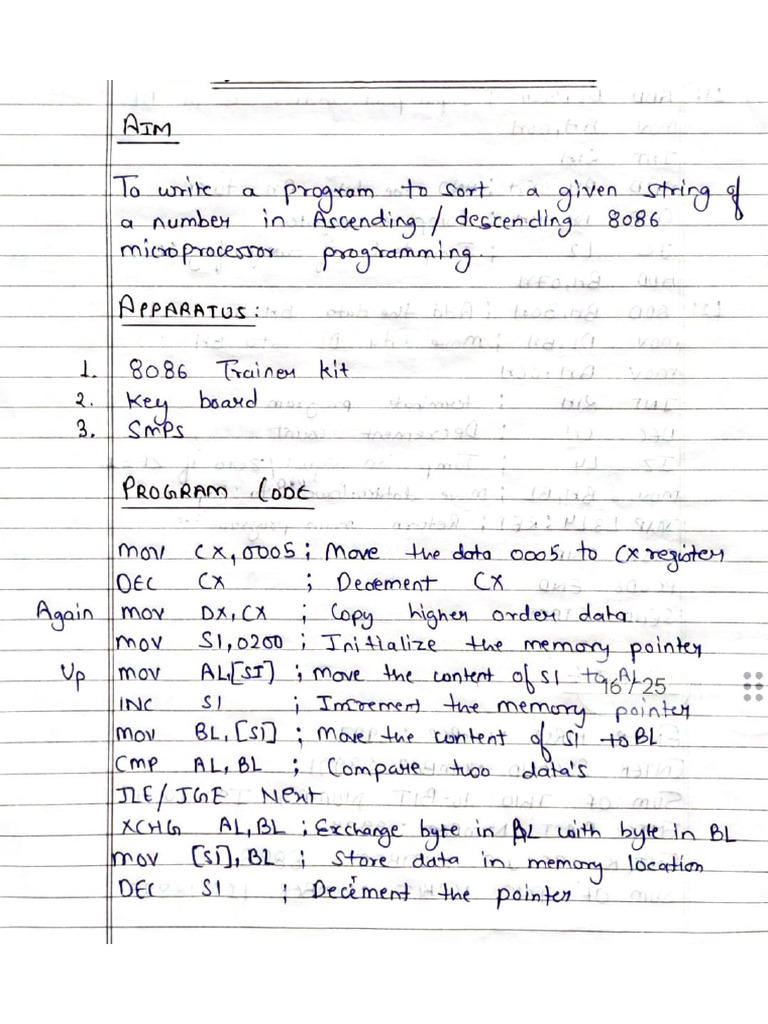 AIM
To write a program to sort a given string of
a number in Ascending / descending 8086
microprocessor programming.
APPARATUS:
1. 8086 Trainer kit
2. Key board
3. SMPS
PROGRAM CODE
MOV CX, 0005 ; Move the data 0005 to CX register
DEC CX ; Decement CX
Again MOV DX, CX ; Copy higher order data
MOV SI, 0200 ; Initialize the memory pointer
Up MOV AL,[SI] ; Move the content of SI to AL
16 / 25
INC SI ; Increment the memory pointer
MOV BL, [SI] ; Move the content of SI to BL
CMP AL, BL ; Compare two data's
JLE/JGE Next
XCHG AL, BL ; Exchange byte in AL with byte in BL
MOV [SI], BL ; Store data in memory location
DEC SI ; Decrement the pointer